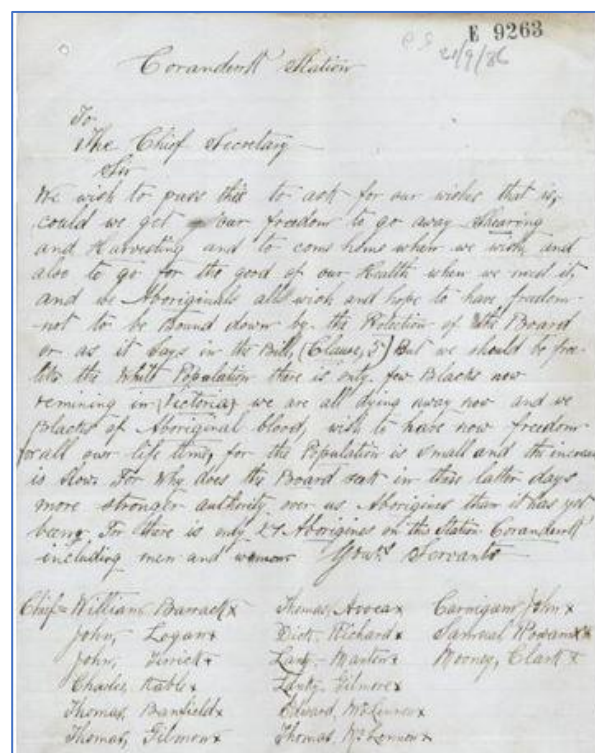 E 9263
21/9/86
Coranderrk Station
To
The Chief Secretary
Sir
We wish to pass this to ask for our wishes that is,
could we get our freedom to go away Shearing
and Harvesting and to come home when we wish and
also to go for the good of our Health when we need it,
and we Aboriginals all wish and hope to have freedom
not to be bound down by the Protection of the Board
or as it says in the Bill, (Clause, 5) But we should be free
like the White Population there is only few Blacks now
remining in (Victoria) we are all dying away now and we
Blacks of Aboriginal blood, wish to have now freedom
for all our life time, for the Population is small and the increase
is slow. For why does the Board seek in these latter days
more stronger authority over us Aborigines than it has yet
being. For there is only 27 Aborigines on this Station Coranderrk
including men and women Yours Servants
Chief = William Barrack x Thomas, Avoca x Carnigam John x
John, Logan x Dick, Richard x Samuel Rowan x
John, Terrick x Lanky, Manton x Mooney, Clark x
Charles, Kable x Gilmore x
Thomas, Banfield x Edward, McLennon x
Thomas, Gilmore x Thomas, McLennon x